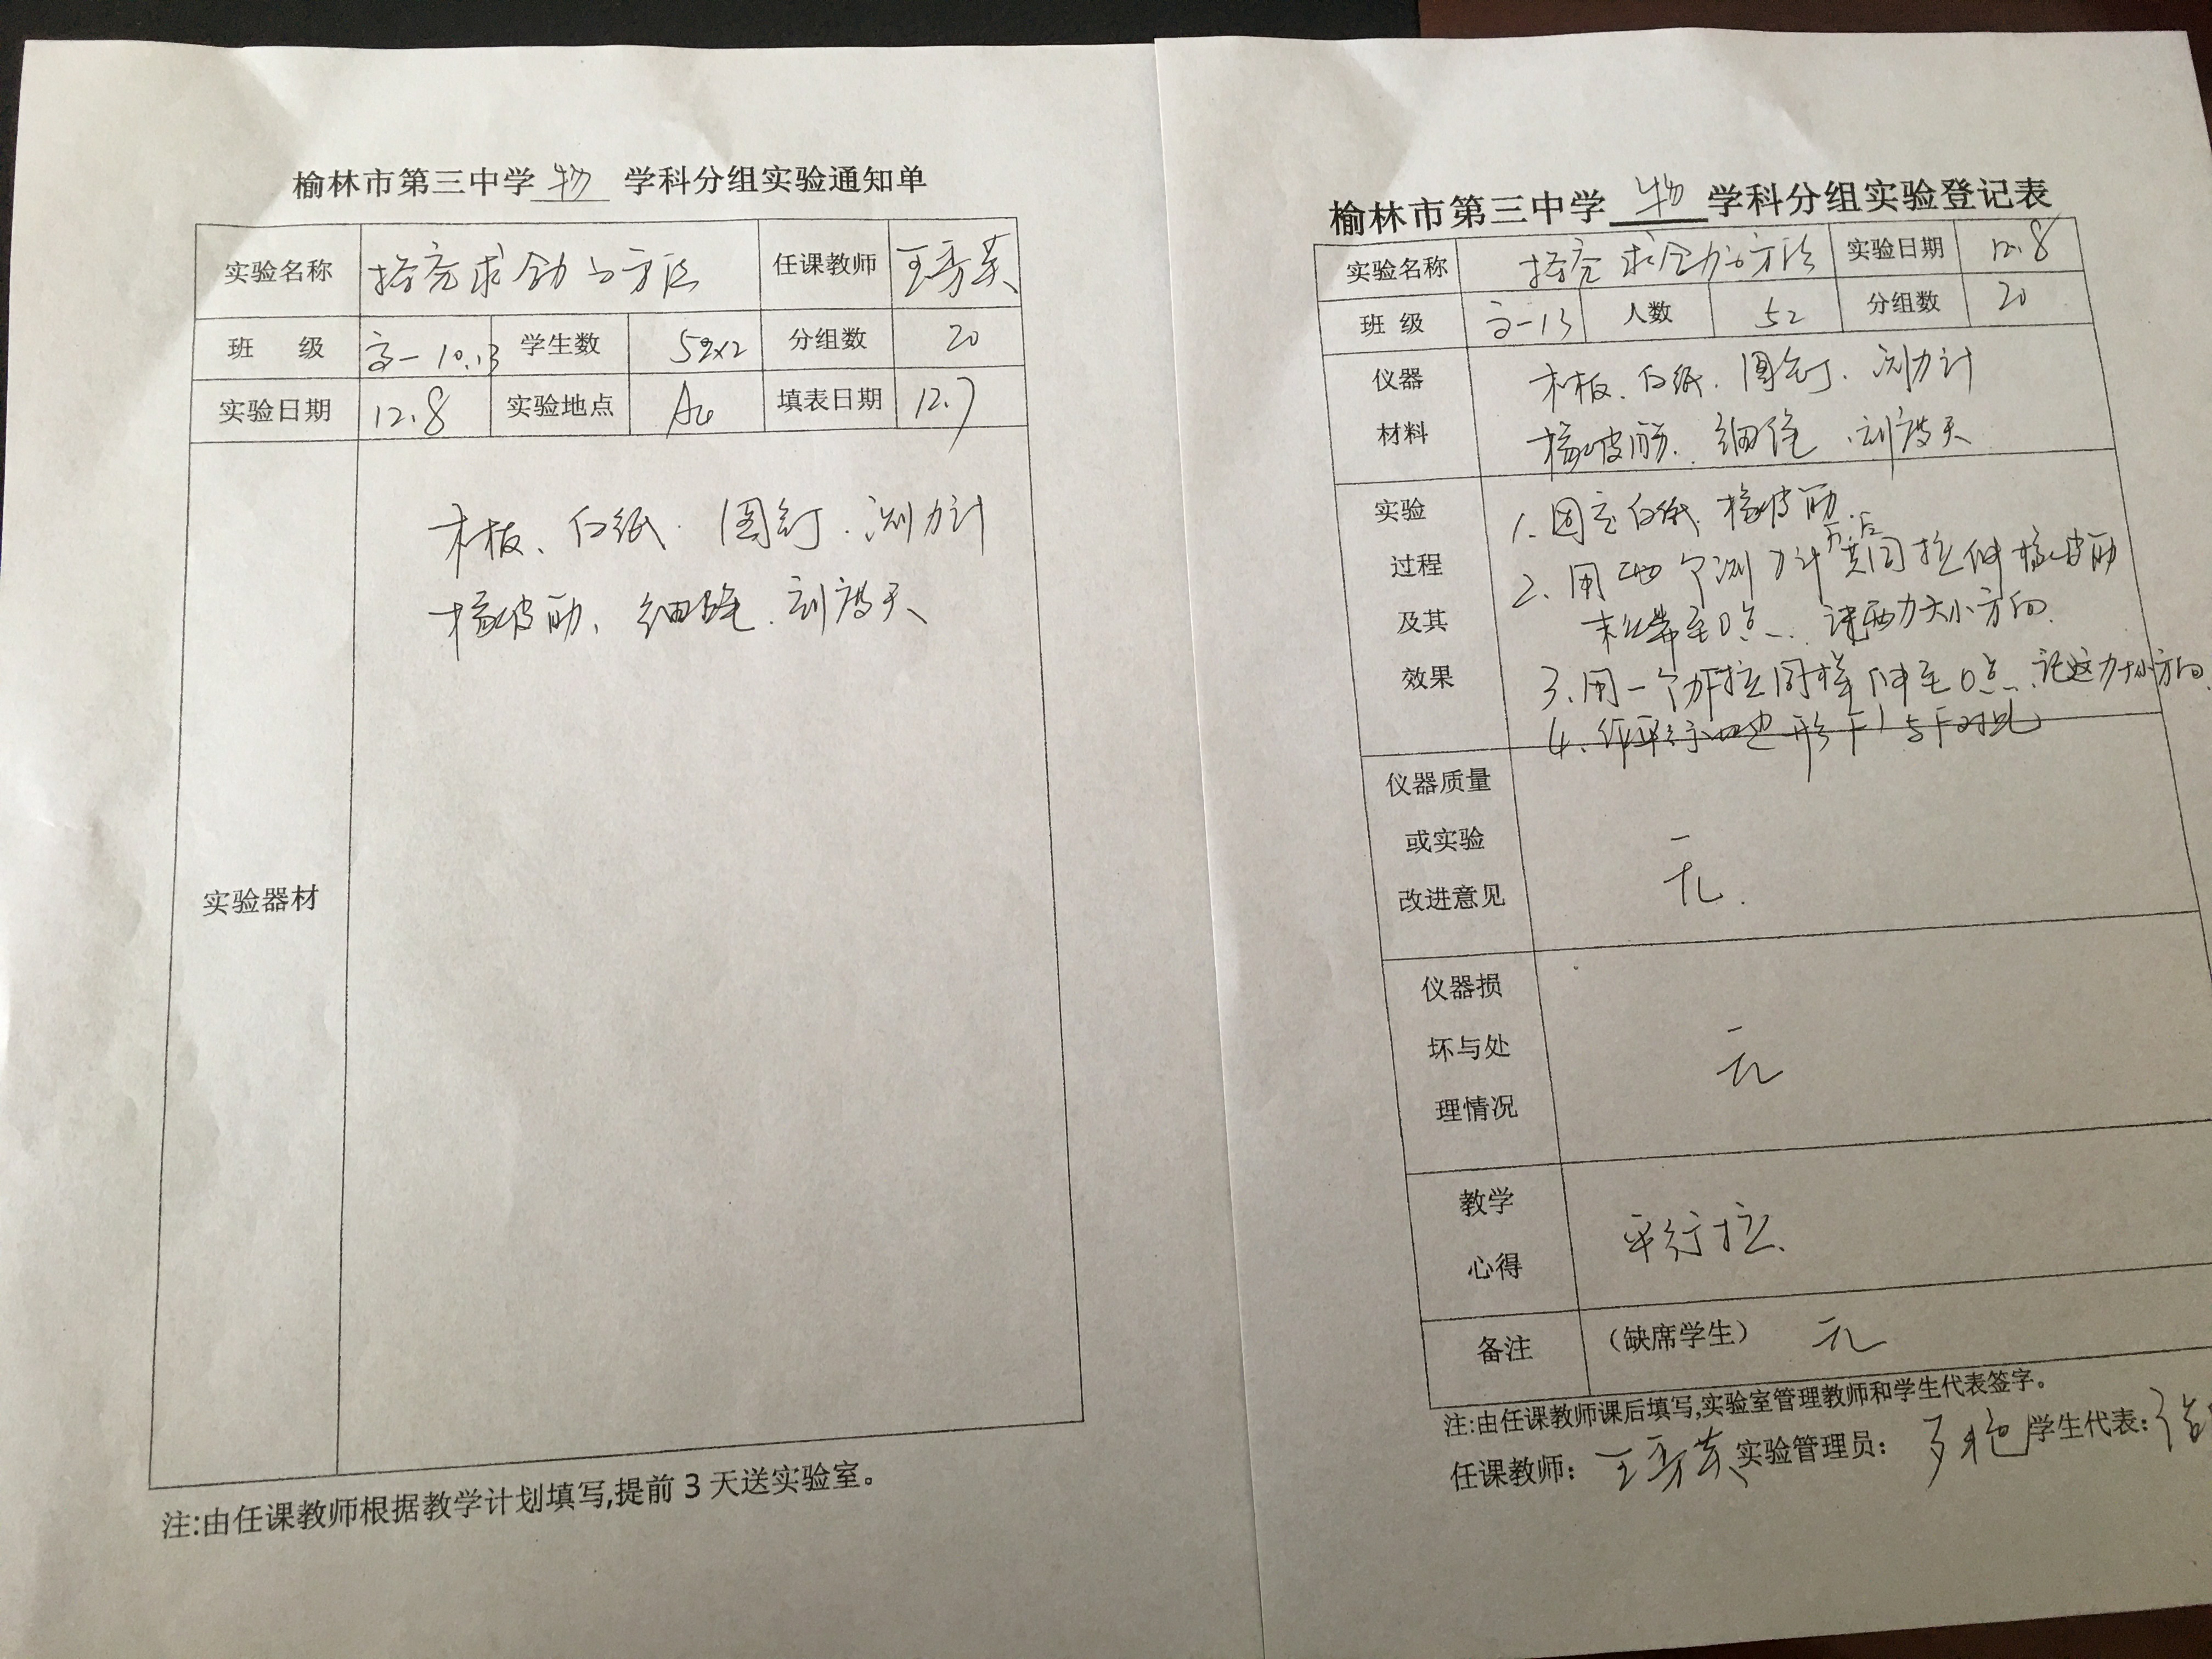 榆林市第三中学 物 学科分组实验通知单
实验名称 探究求合力的方法 任课教师 王秀英
班 级 高一10.13 学生数 52x2 分组数 20
实验日期 12.8 实验地点 填表日期 12.7
木板、白纸. 图钉. 测力计
橡皮筋、细绳. 刻度尺
实验器材
注:由任课教师根据教学计划填写,提前3天送实验室。
榆林市第三中学 物 学科分组实验登记表
实验名称 探究求合力的方法 实验日期 12.8
班 级 高一13 人数 52 分组数 20
仪器 木板、白纸. 图钉. 测力计
材料 橡皮筋. 细绳. 刻度尺
实验 1. 固定白纸. 橡皮筋.
过程 2. 用两个测力计共同拉伸橡皮筋
及其 至O点. 记两力大小方向.
效果 3. 用一个力拉同样伸至O点. 记这力大小方向.
4. 作平行四边形F'与F对比
仪器质量
或实验
改进意见 无.
仪器损
坏与处 无
理情况
教学 平行拉.
心得
备注 (缺席学生) 无
注:由任课教师课后填写,实验室管理教师和学生代表签字。
任课教师: 王秀英 实验管理员: 学生代表: